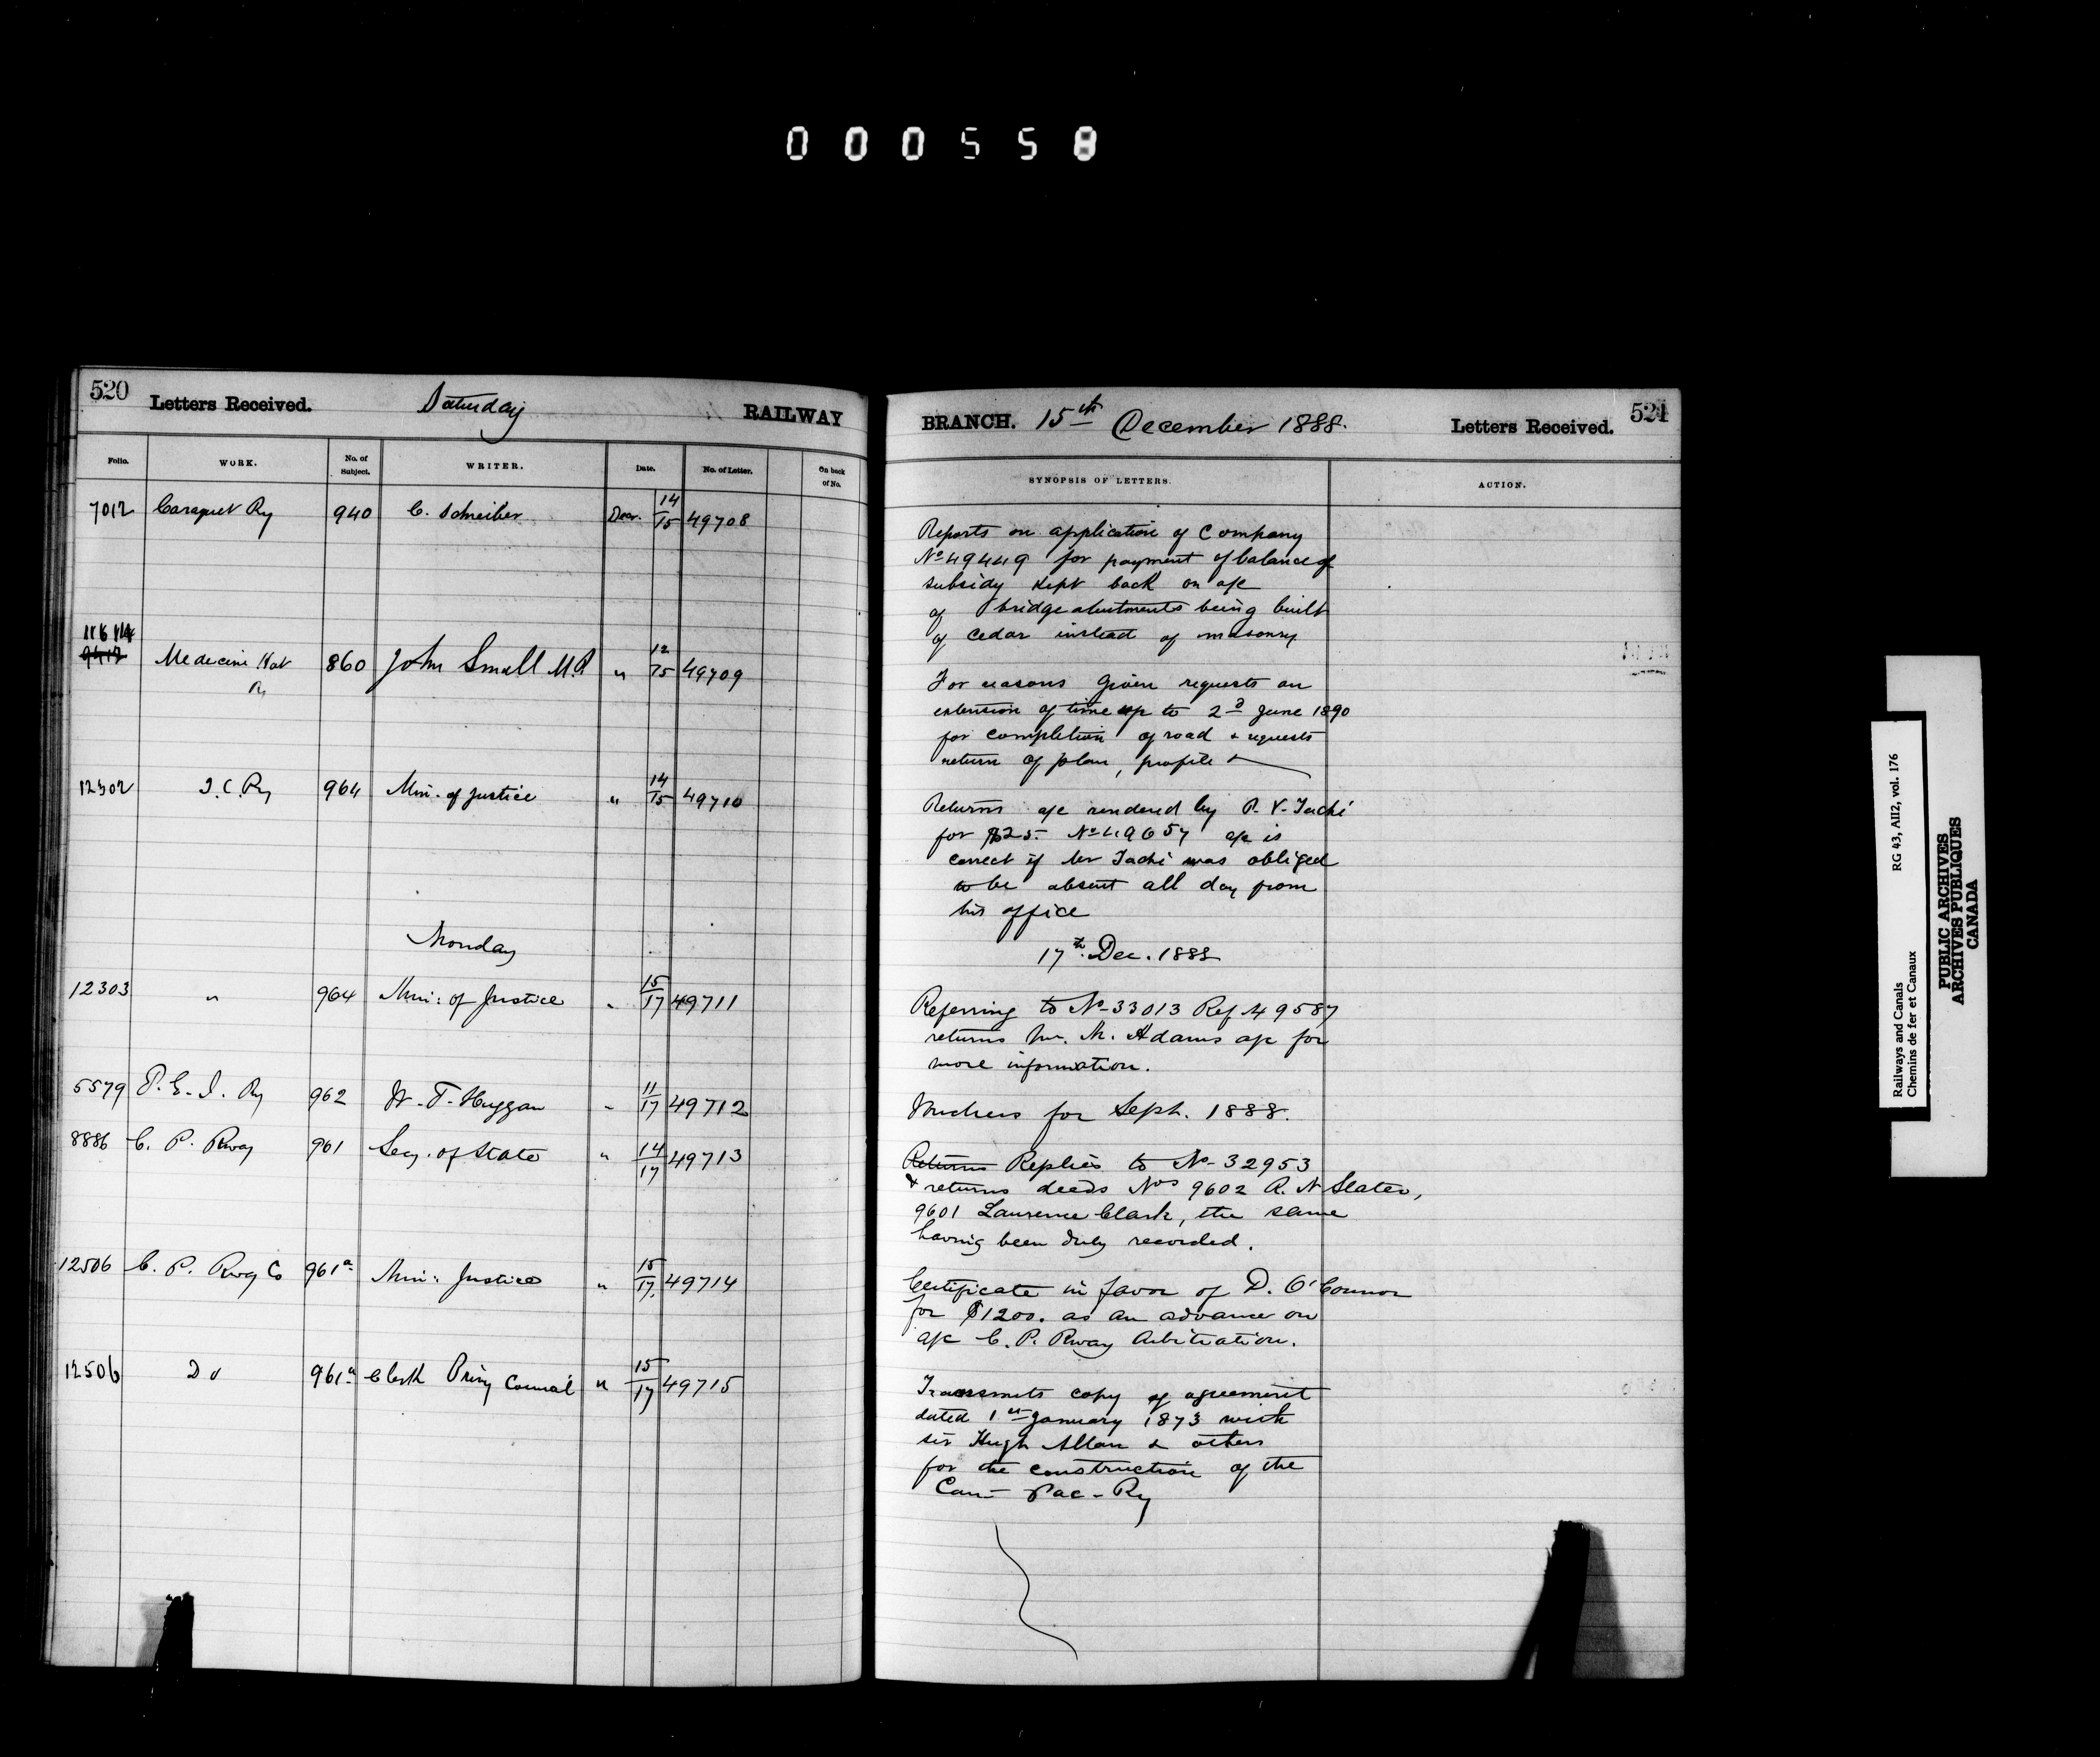 000558
520 Letters Received. Saturday RAILWAY
Folio. WORK. No. of Subject. WRITER. Date. No. of Letter. On back of No.
7012 Caraquet Ry 940 C. Schreiber Decr. 14/15 49708
11614
9412 Medecine Hat Ry 860 John Small M.P " 12/15 49709
12302 I.C. Ry 964 Min. of Justice " 14/15 49710
Monday
12303 " 964 Min: of Justice " 15/17 49711
5579 P. E. I. Ry 962 W. T. Huggan " 11/17 49712
8886 C. P. Rway 961 Secy. of State " 14/17 49713
12506 C. P. Rway Co 961a Min: Justice " 15/17 49714
12506 Do 961a Clerk Privy Council " 15/17 49715
BRANCH. 15th December 1888. Letters Received. 521
SYNOPSIS OF LETTERS. ACTION.
Reports on application of Company
No 49449 for payment of balance of
subsidy kept back on a/c
of bridge abutments being built
of cedar instead of masonry
For reasons given requests an
extension of time up to 2d June 1890
for completion of road & requests
return of plan, profile &
Returns a/c rendered by P. V. Taché
for $25- No 49657 a/c is
correct if Mr Taché was obliged
to be absent all day from
his office
17th Dec. 1888
Referring to No- 33013 Ref 49587
returns Mr. M. Adams a/c for
more information.
Vouchers for Sept. 1888.
Returns Replies to No- 32953
& returns deeds Nos 9602 A. N Slater,
9601 Laurence Clark, the same
having been duly recorded.
Certificate in favor of D. O'Connor
for $1200. as an advance on
a/c C. P. Rway Arbitration.
Transmits copy of agreement
dated 1st January 1873 with
Sir Hugh Allan & others
for the construction of the
Can- Pac- Ry
Railways and Canals RG 43, AII2, vol. 176
Chemins de fer et Canaux
PUBLIC ARCHIVES
ARCHIVES PUBLIQUES
CANADA